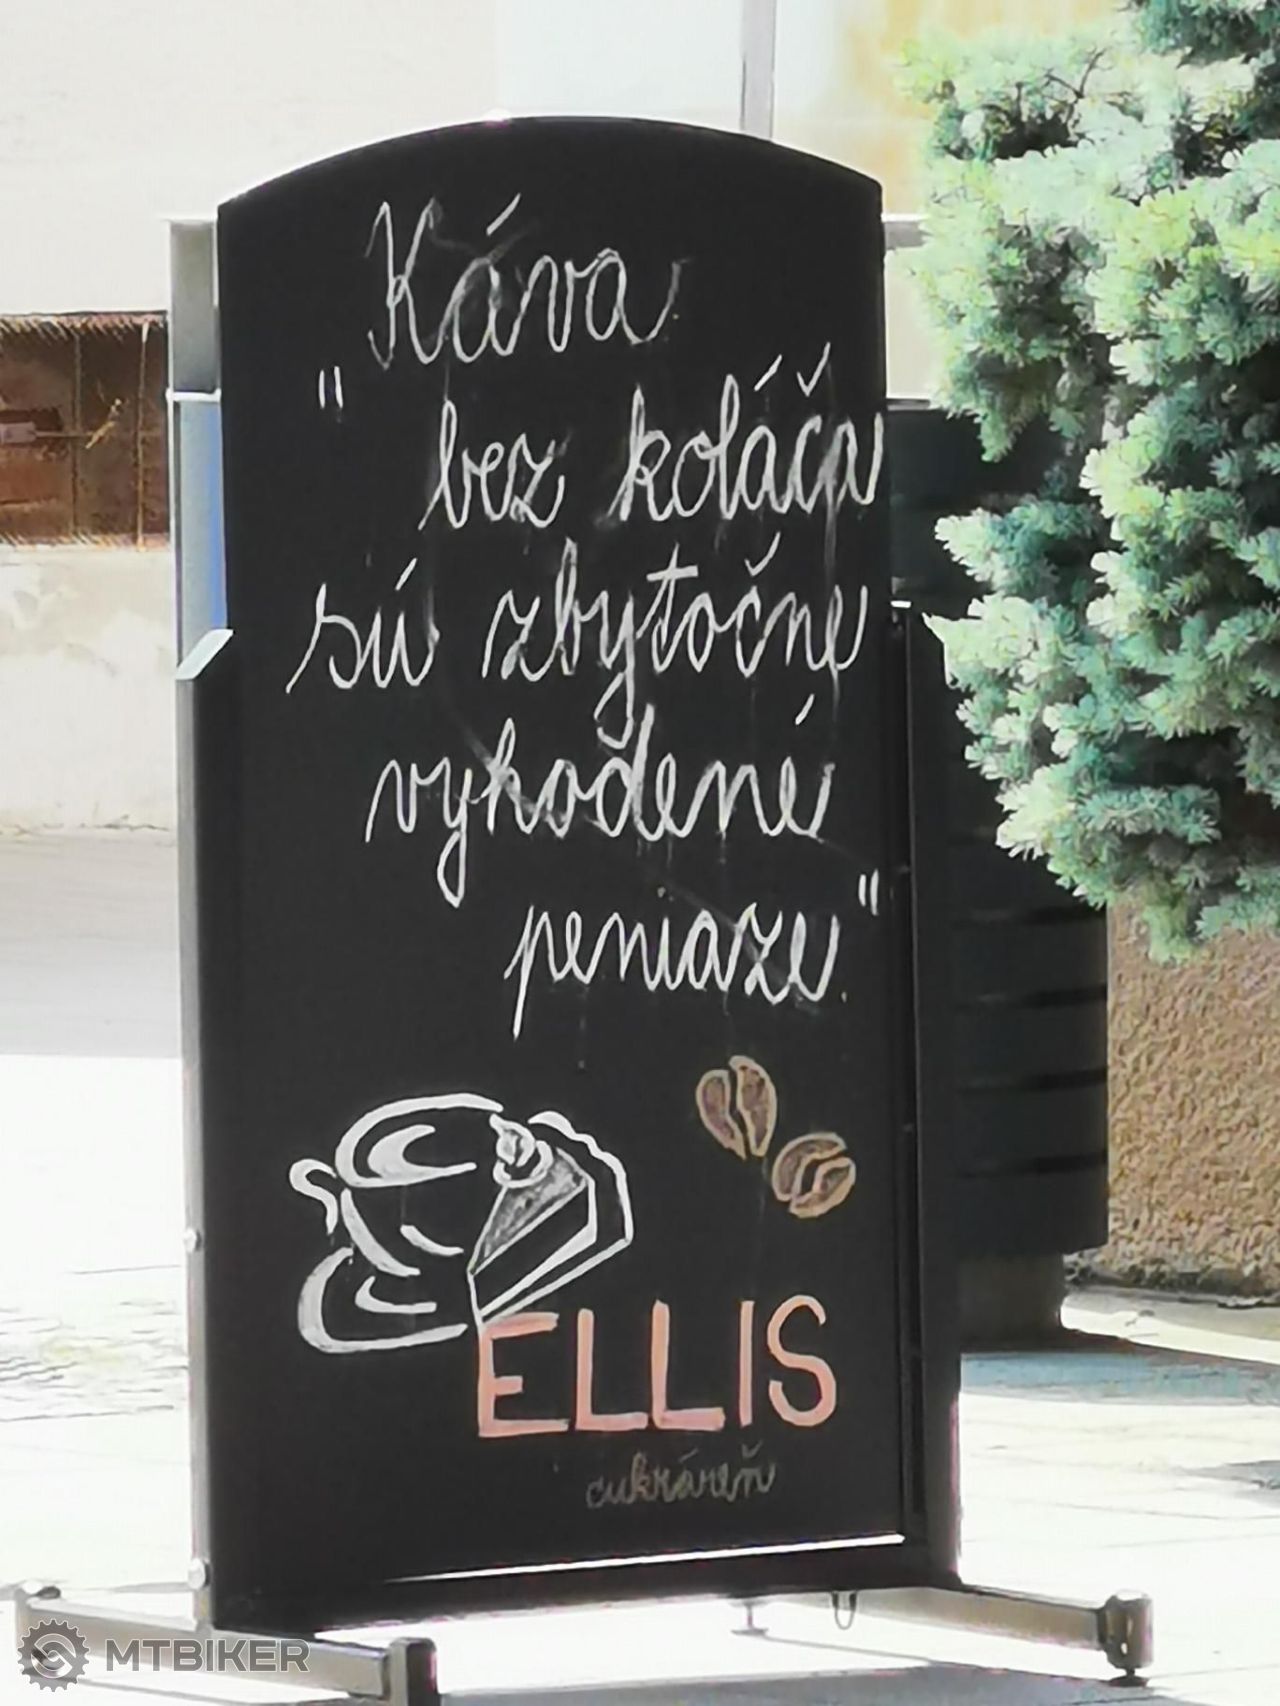 Káva
"bez koláča
sú zbytočne
vyhodené
peniaze"
ELLIS
cukráreň
MTBIKER